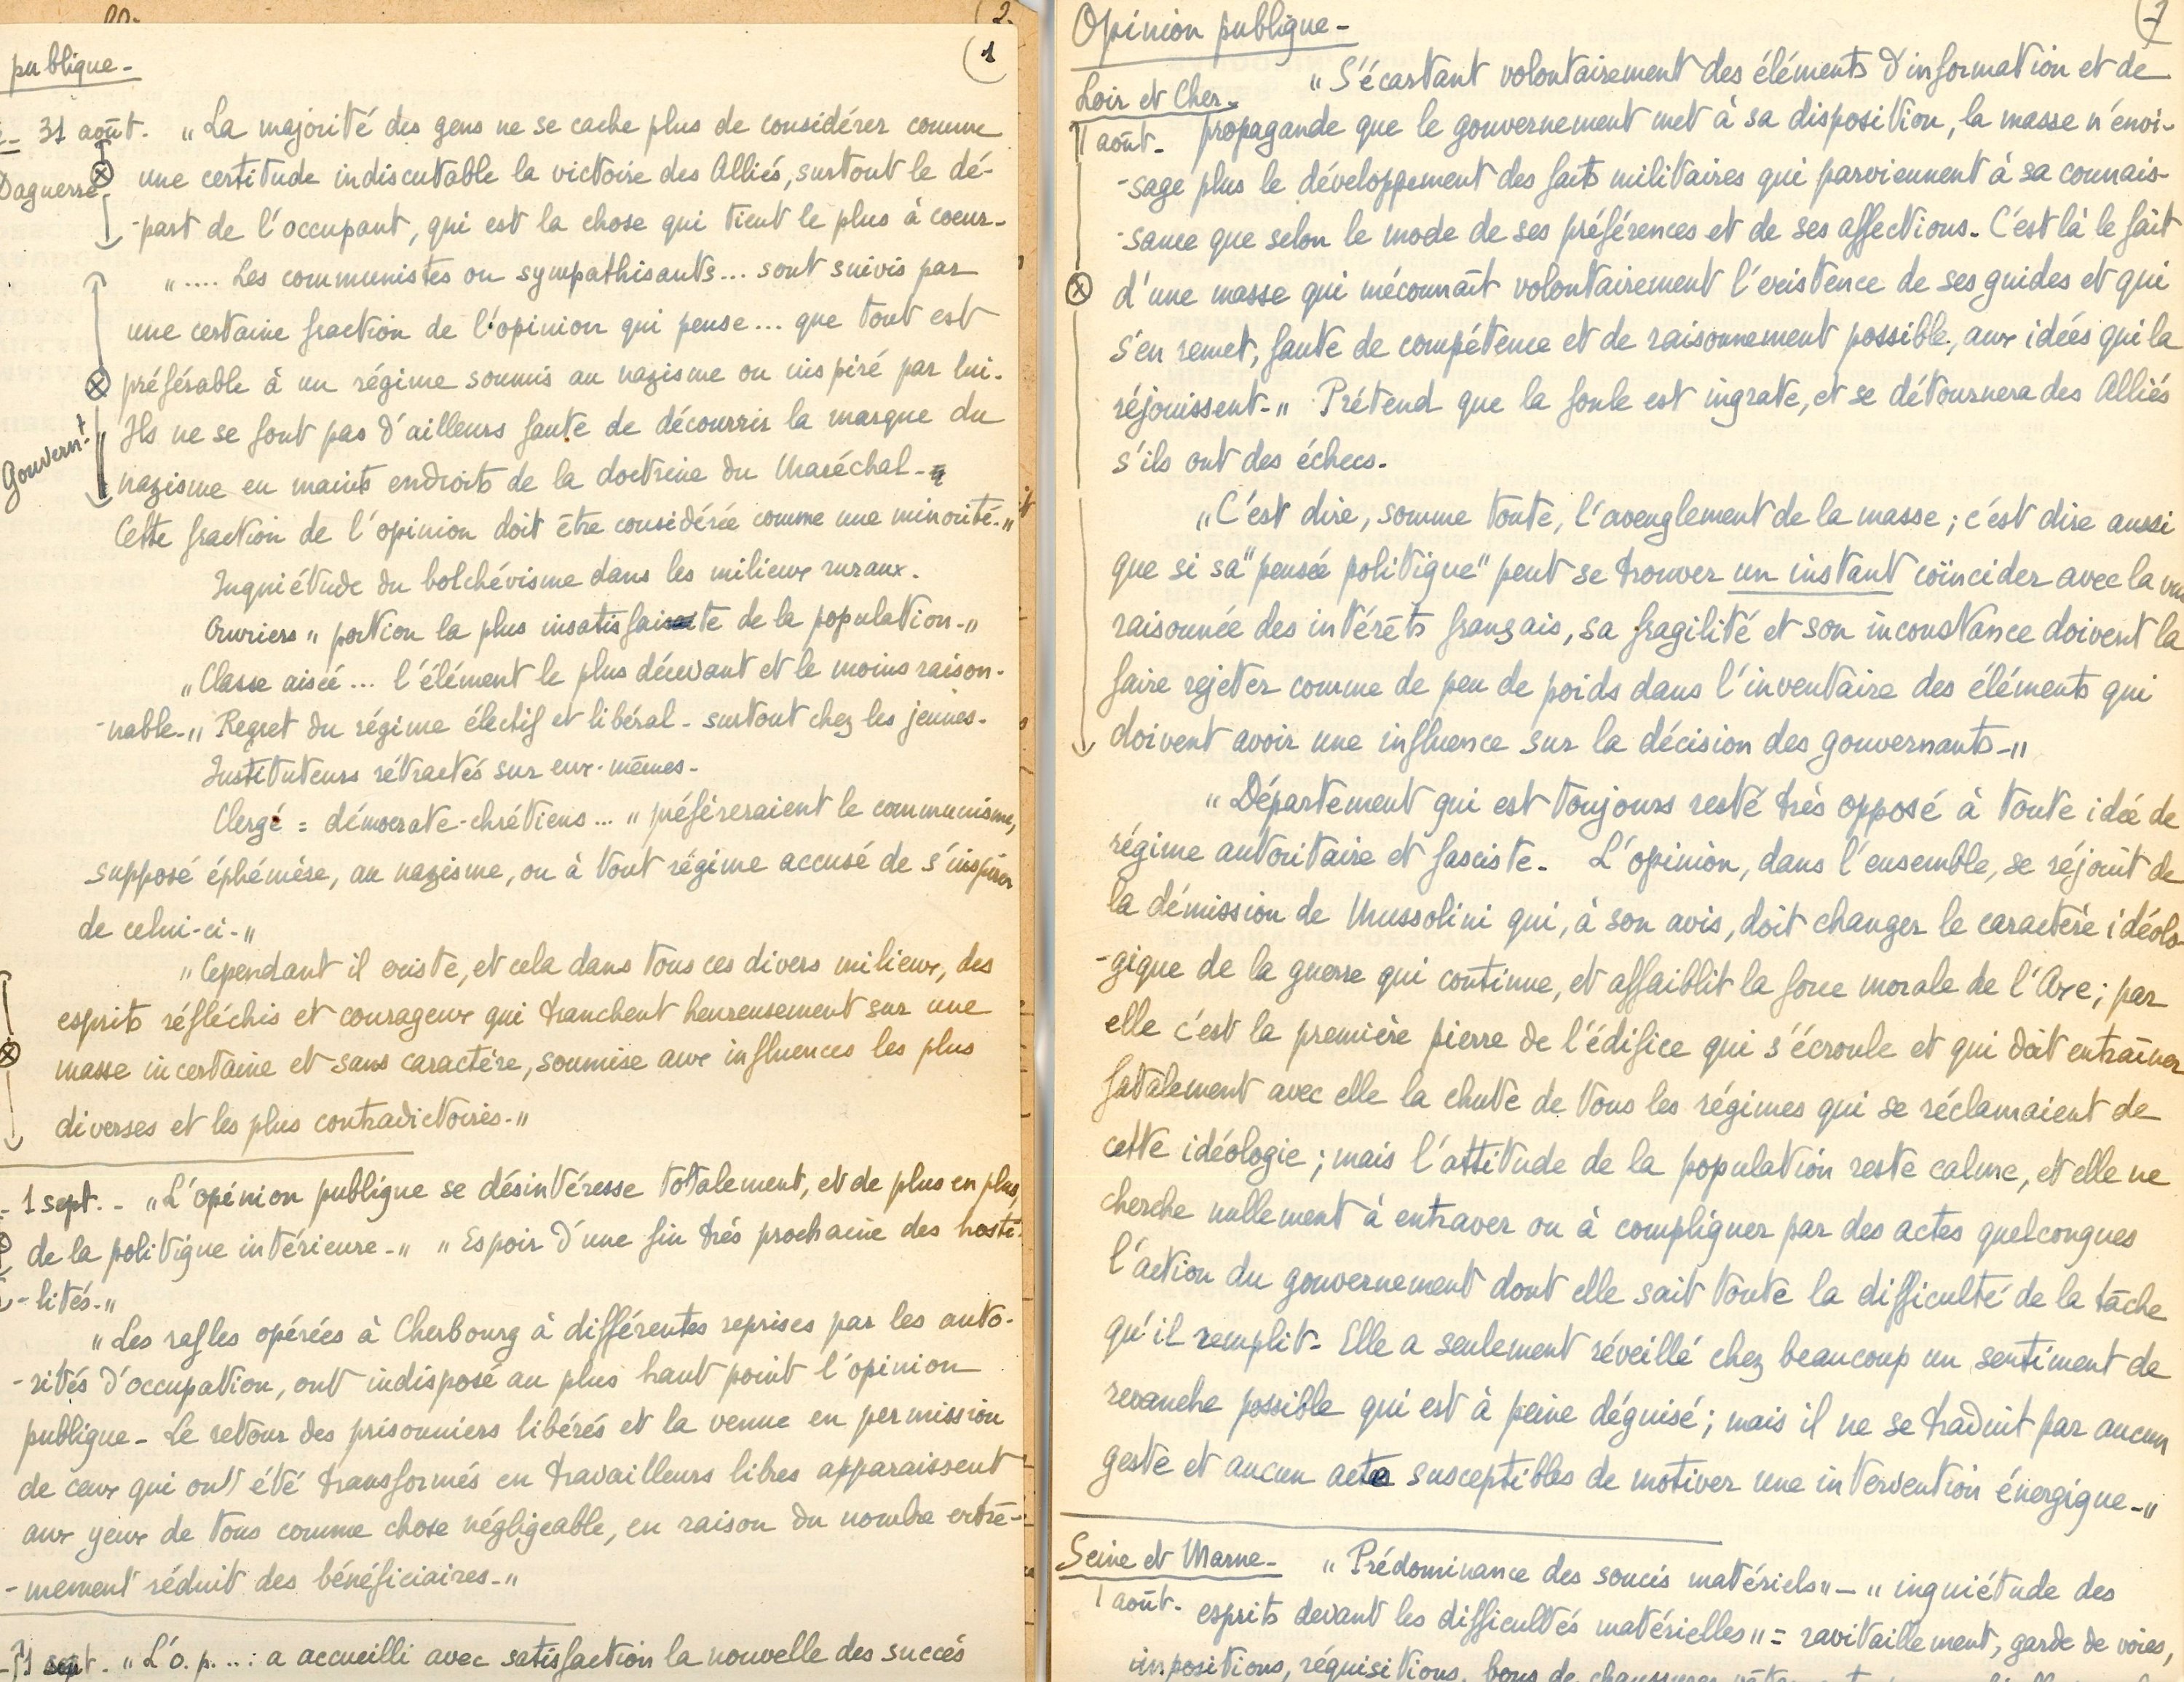 (2.
(1
publique_
31 août. "La majorité des gens ne se cache plus de considérer comme
Daguerre
une certitude indiscutable la victoire des Alliés, surtout le dé-
-part de l'occupant, qui est la chose qui tient le plus à coeur-
".... Les communistes ou sympathisants... sont suivis par
une certaine fraction de l'opinion qui pense... que tout est
préférable à un régime soumis au nazisme ou inspiré par lui.
Gouvernt
Ils ne se font pas d'ailleurs faute de découvrir la marque du
nazisme en maints endroits de la doctrine du Maréchal-
Cette fraction de l'opinion doit être considérée comme une minorité."
Inquiétude du bolchévisme dans les milieux ruraux.
Ouvriers " portion la plus insatisfaite de la population-"
"Classe aisée... l'élément le plus décevant et le moins raison-
-nable-" Regret du régime électif et libéral - surtout chez les jeunes-
Instituteurs rétractés sur eux-mêmes-
Clergé = démocrate-chrétiens... "préféreraient le communisme,
supposé éphémère, au nazisme, ou à tout régime accusé de s'inspirer
de celui-ci-"
"Cependant il existe, et cela dans tous ces divers milieux, des
esprits réfléchis et courageux qui tranchent heureusement sur une
masse incertaine et sans caractère, soumise aux influences les plus
diverses et les plus contradictoires-"
- 1 sept. - "L'opinion publique se désintéresse totalement, et de plus en plus,
de la politique intérieure-" "Espoir d'une fin très prochaine des hosti-
-lités-"
"Les rafles opérées à Cherbourg à différentes reprises par les auto-
-rités d'occupation, ont indisposé au plus haut point l'opinion
publique- Le retour des prisonniers libérés et la venue en permission
de ceux qui ont été transformés en travailleurs libres apparaissent
aux yeux de tous comme chose négligeable, en raison du nombre extrê-
-mement réduit des bénéficiaires-"
sept. "L'o. p. ...: a accueilli avec satisfaction la nouvelle des succès
Opinion publique-
Loir et Cher-
"S'écartant volontairement des éléments d'information et de
1 août- propagande que le gouvernement met à sa disposition, la masse n'envi-
-sage plus le développement des faits militaires qui parviennent à sa connais-
-sance que selon le mode de ses préférences et de ses affections. C'est là le fait
d'une masse qui méconnaît volontairement l'existence de ses guides et qui
s'en remet, faute de compétence et de raisonnement possible, aux idées qui la
réjouissent-" Prétend que la foule est ingrate, et se détournera des Alliés
s'ils ont des échecs.
"C'est dire, somme toute, l'aveuglement de la masse; c'est dire aussi
que si sa "pensée politique" peut se trouver un instant coïncider avec la vue
raisonnée des intérêts français, sa fragilité et son inconstance doivent la
faire rejeter comme de peu de poids dans l'inventaire des éléments qui
doivent avoir une influence sur la décision des gouvernants-"
"Département qui est toujours resté très opposé à toute idée de
régime autoritaire et fasciste. L'opinion, dans l'ensemble, se réjouit de
la démission de Mussolini qui, à son avis, doit changer le caractère idéolo-
-gique de la guerre qui continue, et affaiblit la force morale de l'Axe; par
elle c'est la première pierre de l'édifice qui s'écroule et qui doit entraîner
fatalement avec elle la chute de tous les régimes qui se réclamaient de
cette idéologie; mais l'attitude de la population reste calme, et elle ne
cherche nullement à entraver ou à compliquer par des actes quelconques
l'action du gouvernement dont elle sait toute la difficulté de la tâche
qu'il remplit- Elle a seulement réveillé chez beaucoup un sentiment de
revanche possible qui est à peine déguisé; mais il ne se traduit par aucun
geste et aucun acte susceptibles de motiver une intervention énergique-"
Seine et Marne- "Prédominance des soucis matériels" - "inquiétude des
1 août. esprits devant les difficultés matérielles" = ravitaillement, garde de voies,
impositions, réquisitions, bons de chaussures